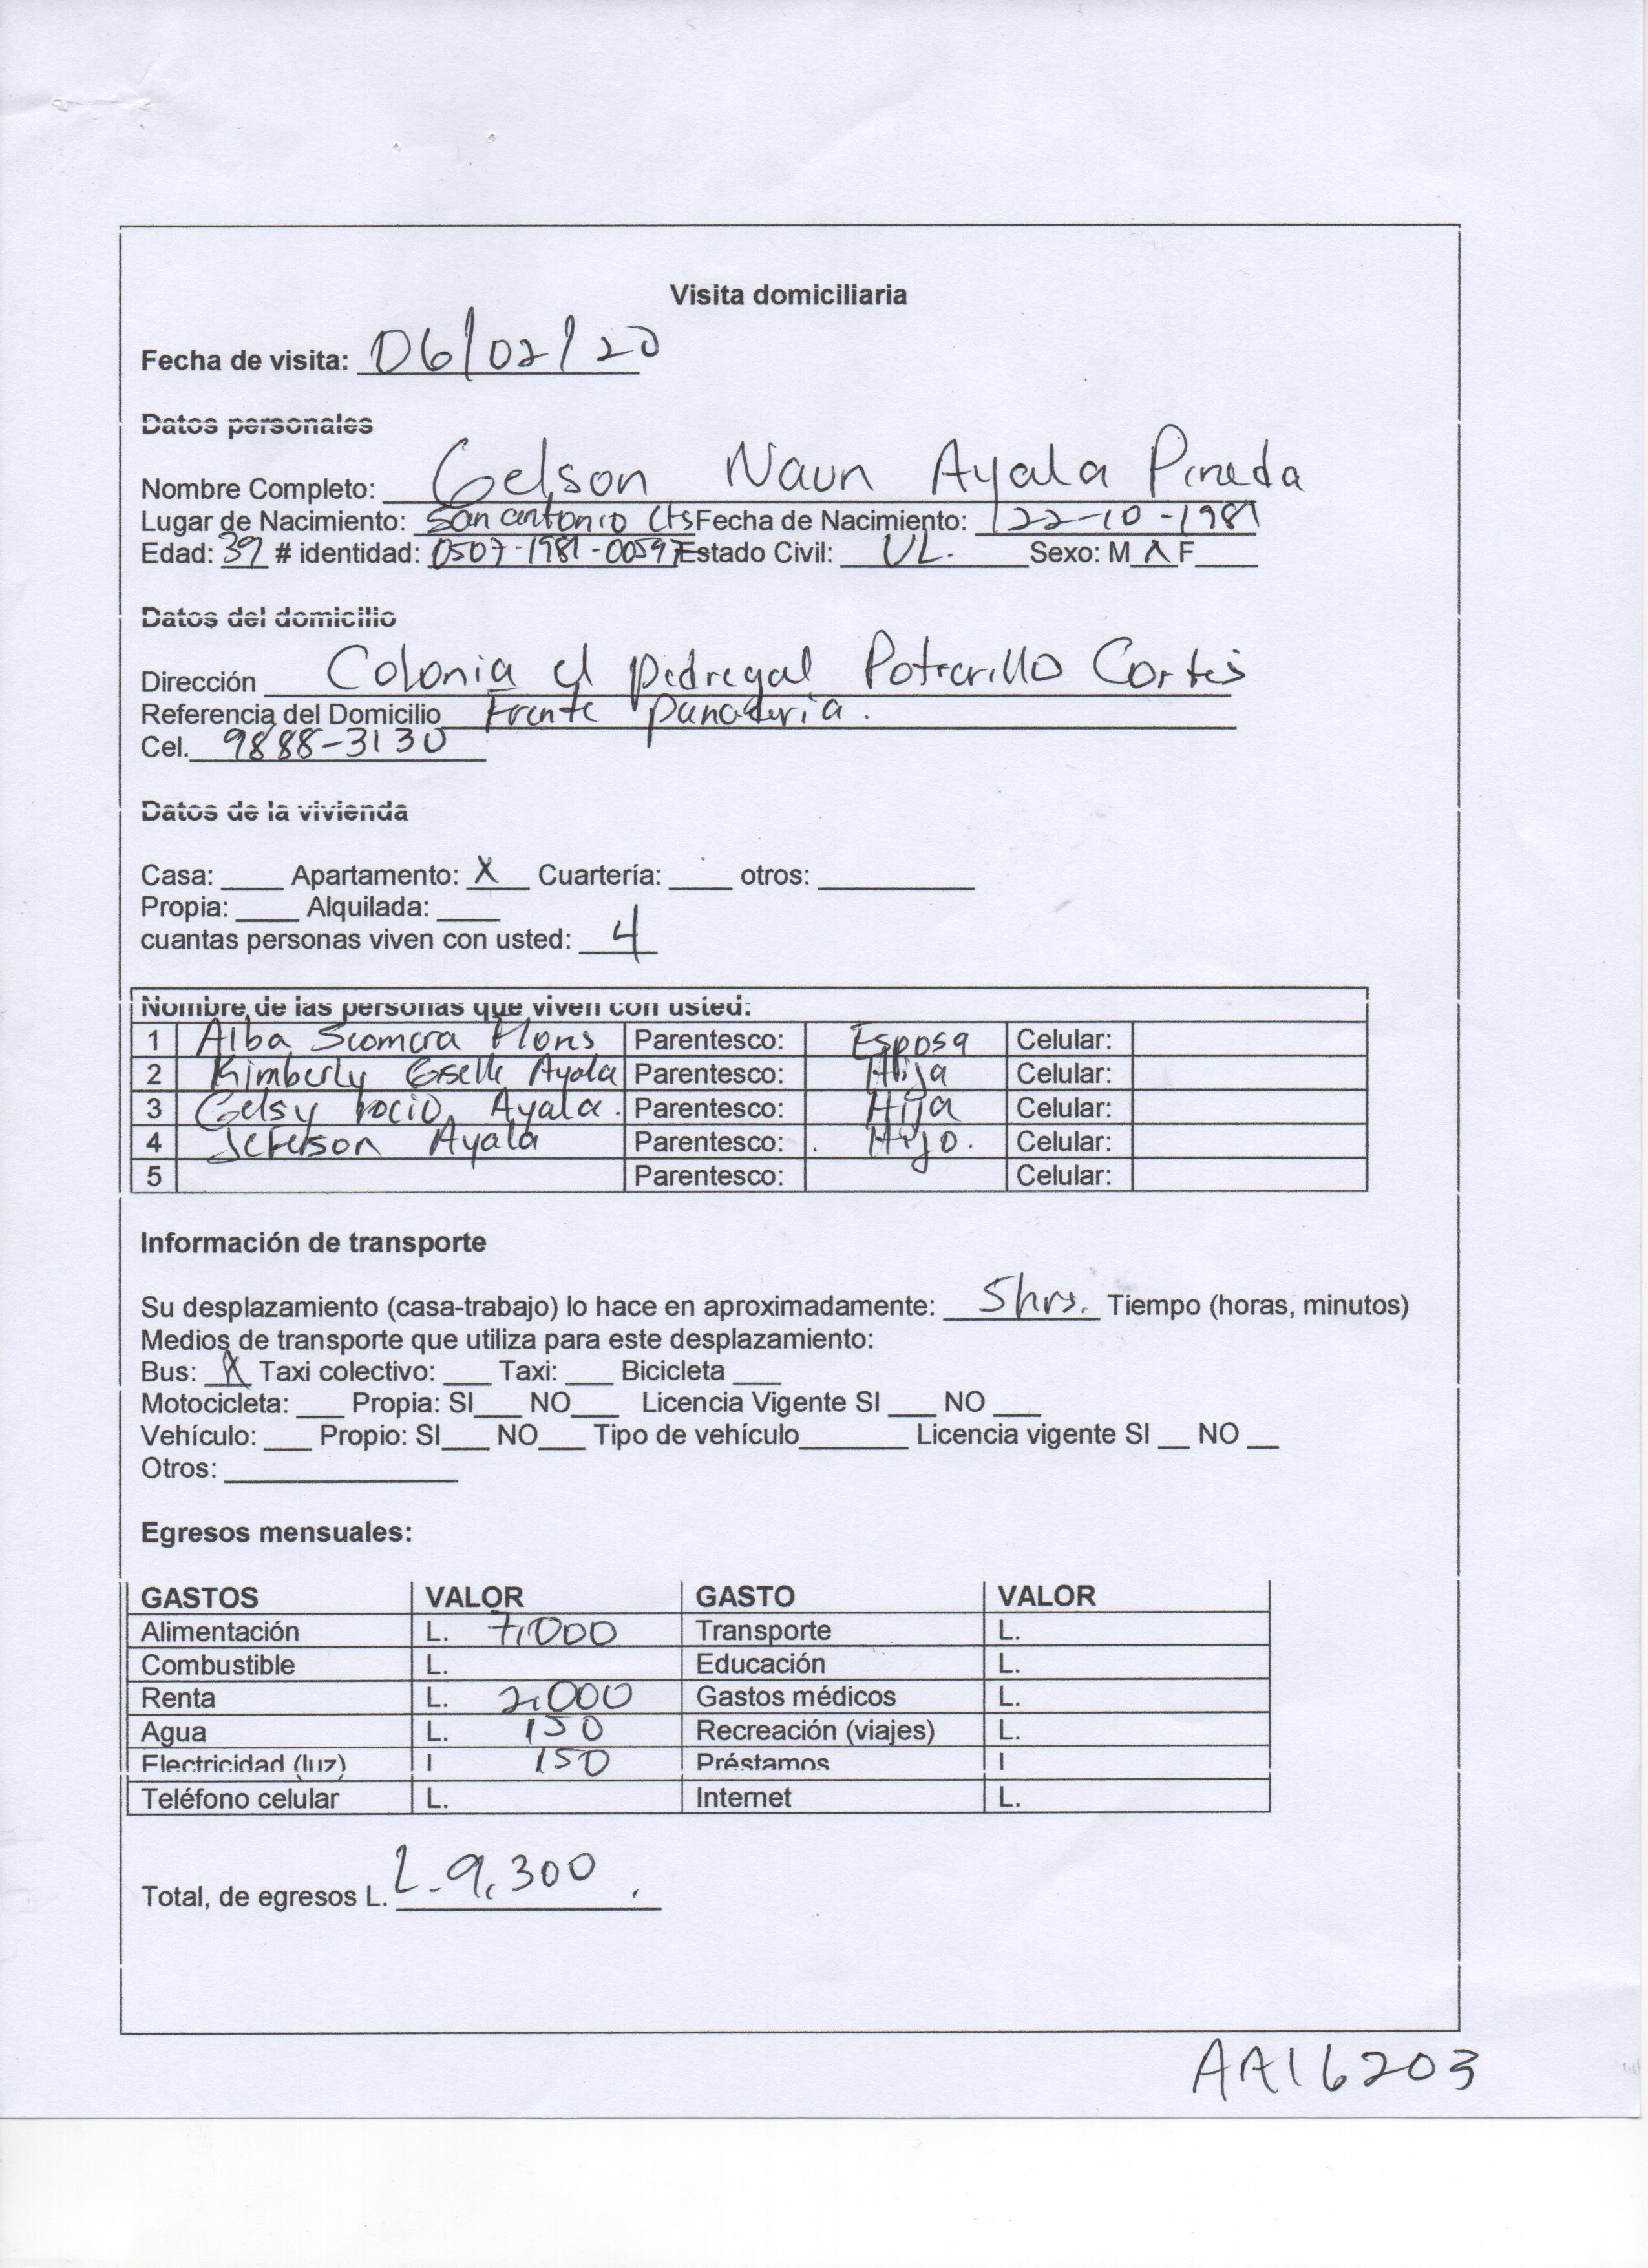 Visita domiciliaria
Fecha de visita: 06/02/20
Datos personales
Nombre Completo: Gelson Naun Ayala Pineda
Lugar de Nacimiento: San antonio Cts Fecha de Nacimiento: 22-10-1981
Edad: 39 # identidad: 0507-1981-00597 Estado Civil: UL. Sexo: M X F
Datos del domicilio
Dirección Colonia el pedregal Potrerillo Cortes
Referencia del Domicilio Frente panaderia.
Cel. 9888-3130
Datos de la vivienda
Casa: ____ Apartamento: X Cuartería: ____ otros: ____
Propia: ____ Alquilada: ____
cuantas personas viven con usted: 4
Nombre de las personas que viven con usted:
1 Alba Flores Parentesco: Esposa Celular:
2 Kimberly Giselle Ayala Parentesco: Hija Celular:
3 Gelsy rocio Ayala. Parentesco: Hija Celular:
4 Jeferson Ayala Parentesco: Hijo. Celular:
5 Parentesco: Celular:
Información de transporte
Su desplazamiento (casa-trabajo) lo hace en aproximadamente: 5hrs. Tiempo (horas, minutos)
Medios de transporte que utiliza para este desplazamiento:
Bus: X Taxi colectivo: ___ Taxi: ___ Bicicleta ___
Motocicleta: ___ Propia: SI___ NO___ Licencia Vigente SI ___ NO ___
Vehículo: ___ Propio: SI___ NO___ Tipo de vehículo_______ Licencia vigente SI __ NO __
Otros: ____
Egresos mensuales:
GASTOS VALOR GASTO VALOR
Alimentación L. 7,000 Transporte L.
Combustible L. Educación L.
Renta L. 2,000 Gastos médicos L.
Agua L. 150 Recreación (viajes) L.
Electricidad (luz) L 150 Préstamos L
Teléfono celular L. Internet L.
Total, de egresos L. L. 9,300.
AA16203